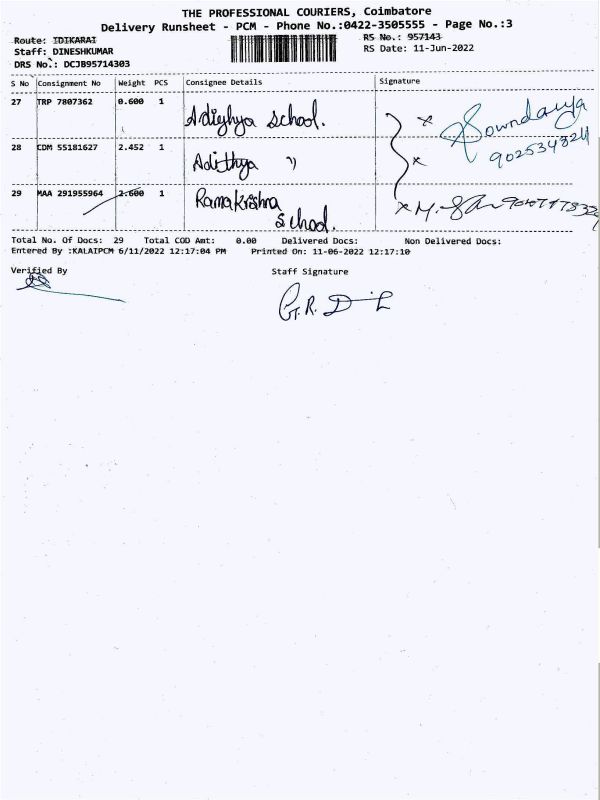 THE PROFESSIONAL COURIERS, Coimbatore
Delivery Runsheet - PCM - Phone No.:0422-3505555 - Page No.:3
Route: IDIKARAI RS No.: 957143
Staff: DINESHKUMAR RS Date: 11-Jun-2022
DRS No.: DCJB95714303
S No Consignment No Weight PCS Consignee Details Signature
27 TRP 7807362 0.600 1 Adighya School. x Sowndarya
9025348211
28 CDM 55181627 2.452 1 Adithya " x
29 MAA 291955964 2.600 1 Ramakrishna x M.
School.
Total No. Of Docs: 29 Total COD Amt: 0.00 Delivered Docs: Non Delivered Docs:
Entered By :KALAIPCM 6/11/2022 12:17:04 PM Printed On: 11-06-2022 12:17:10
Verified By Staff Signature
G.R.